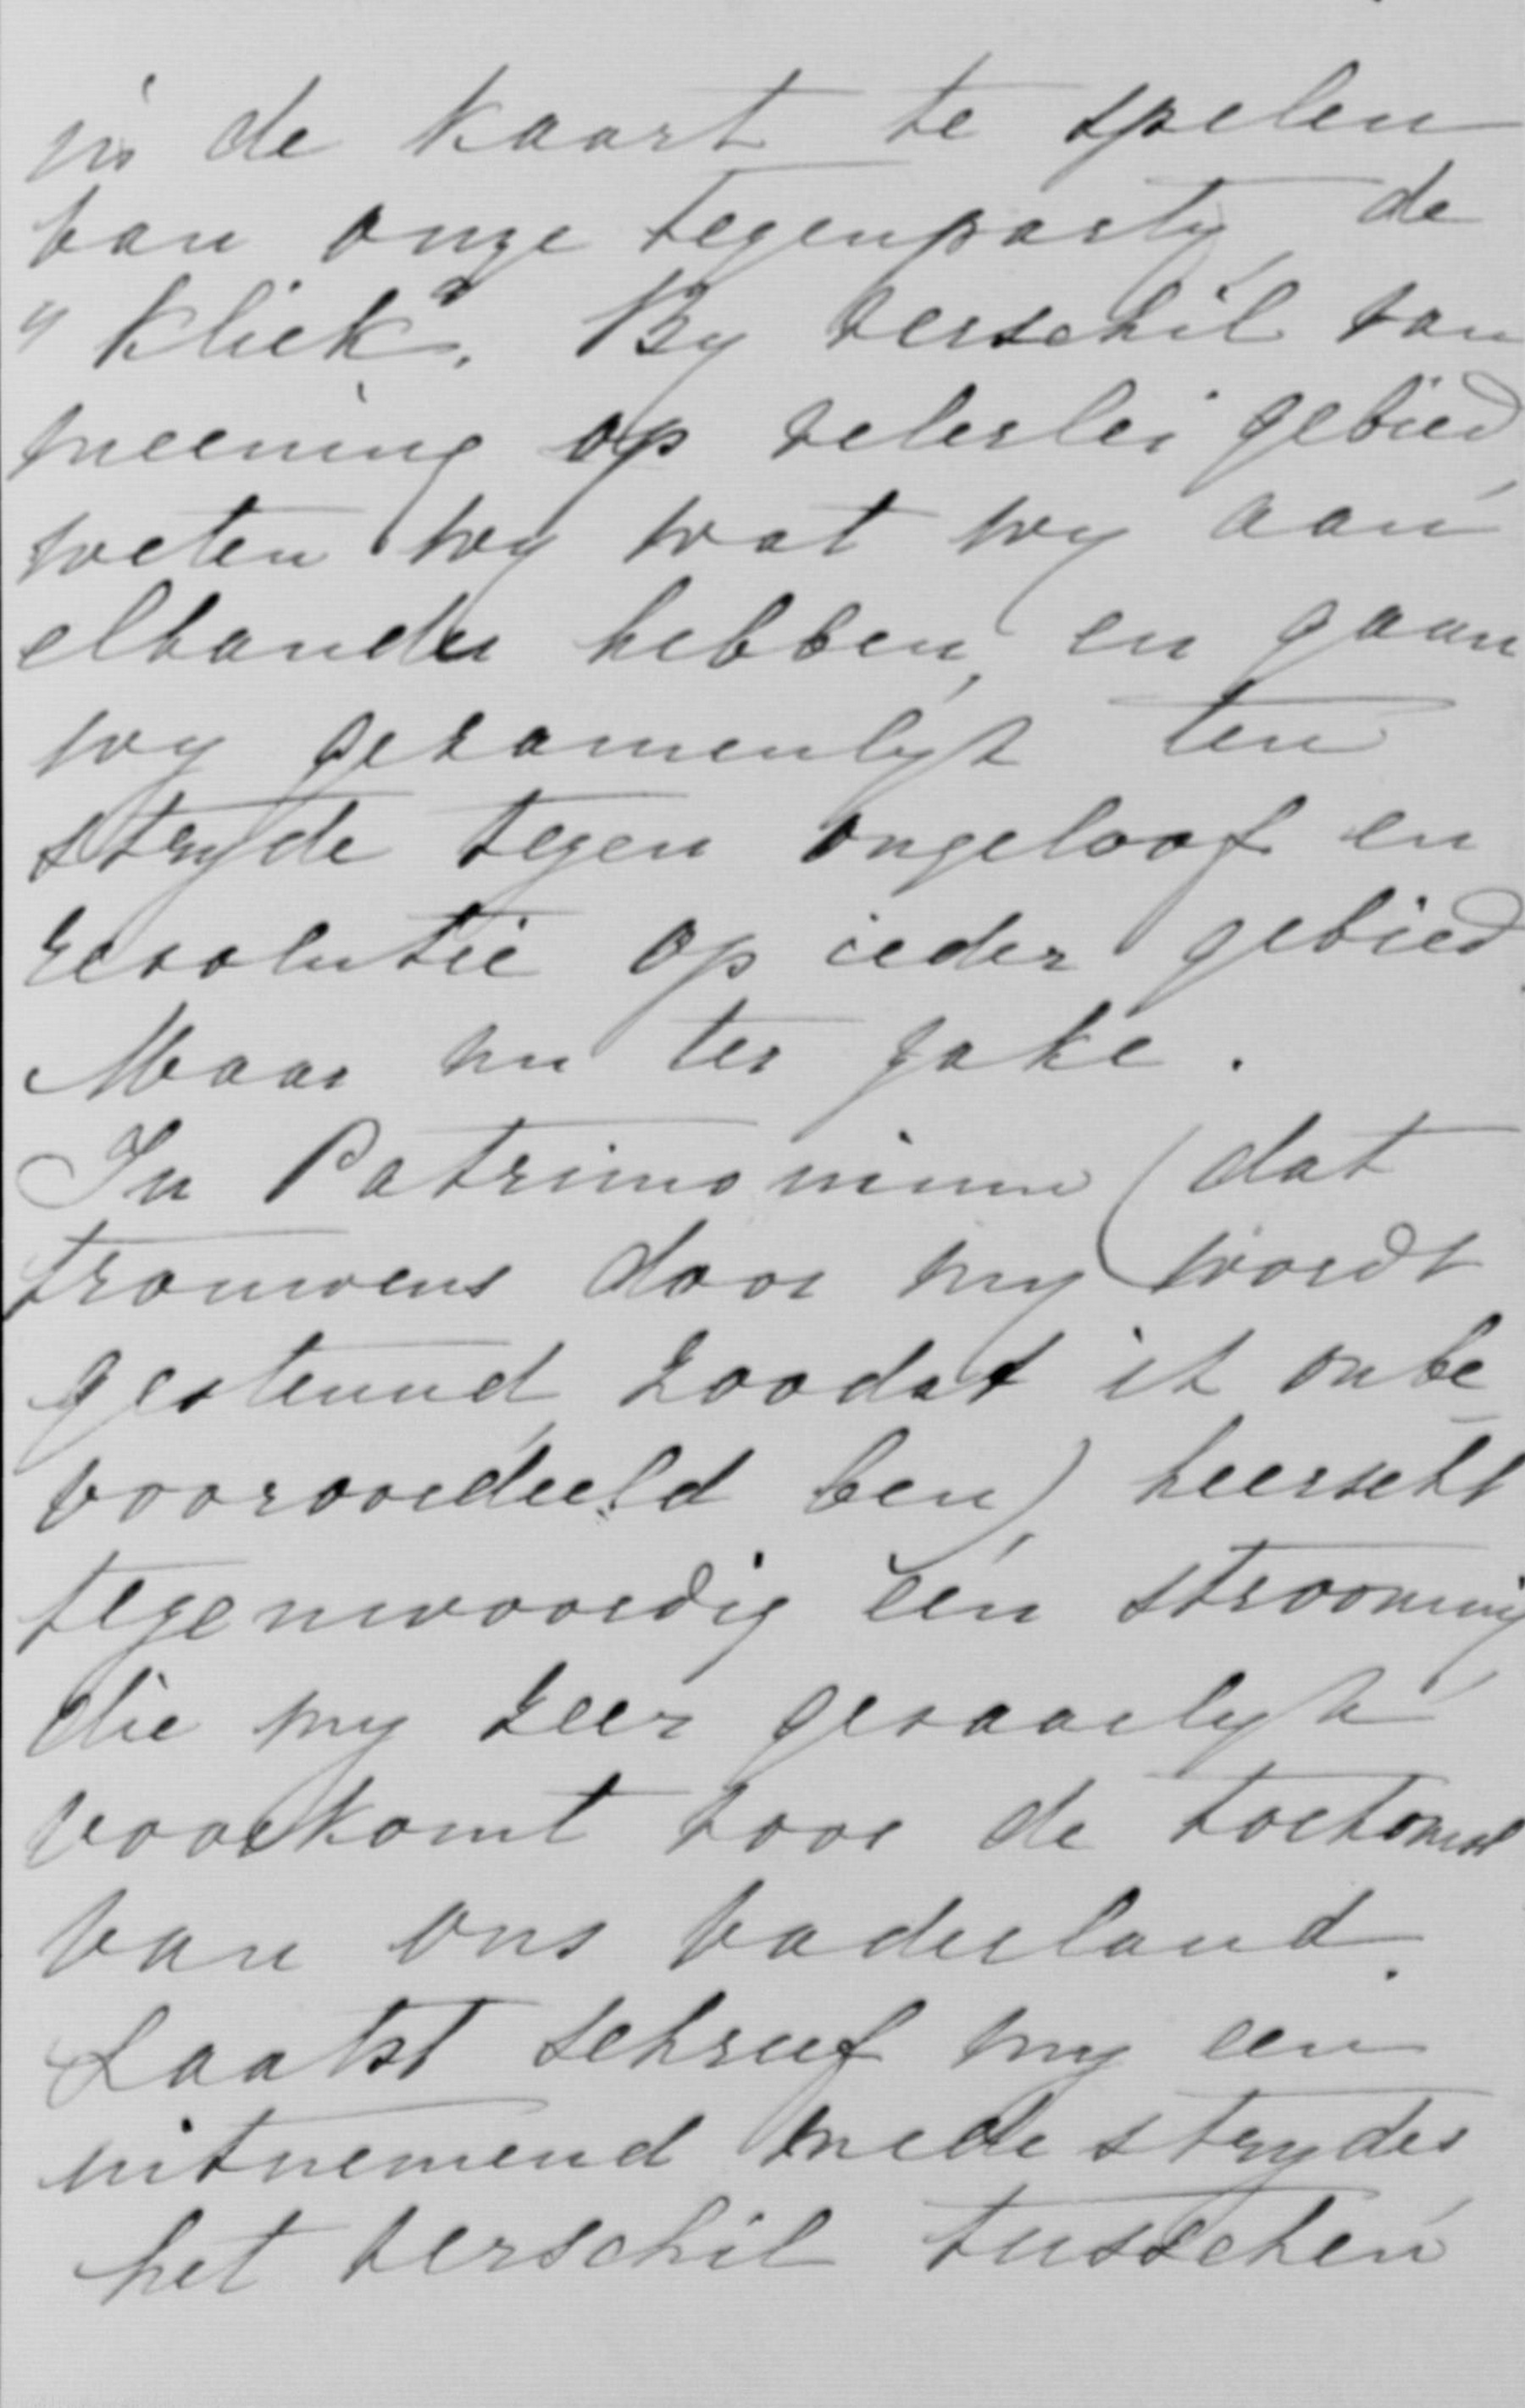 in de kaart te spelen
van onze tegenparty, de
"kliek". By verschil van
meening op velerlei gebied,
weten wy wat wy aan
elkander hebben, en gaan
wy gezamenlyk ten
stryde tegen ongeloof en
revolutie op ieder gebied.
Maar nu ter zake.
In Patrimonium (dat
trouwens door my wordt
gesteund, zoodat ik onbe-
vooroordeeld ben), heerscht
tegenwoordig een strooming,
die my zeer gevaarlyk
voorkomt voor de toekomst
van ons vaderland.
Laatst schreef my een
uitnemend medestryder
het verschil tusschen